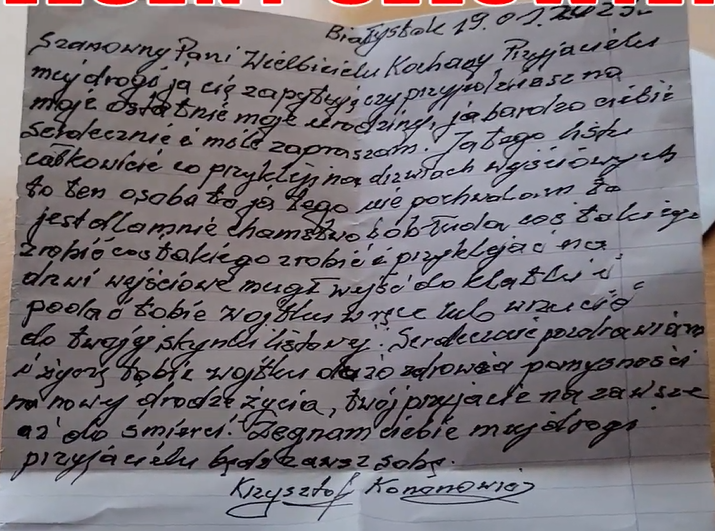 Białystok 19.01.2023r
Szanowny Pani Wielbicielu Kochany Przyjacielu
mój drogi ja cię zapytuję czy przyjdziesz na
moje ostatnie moje urodziny, ja bardzo ciebie
serdecznie i miłe zapraszam. Ja tego listu
całkowicie co przykleji na drzwiach wyjściowych
to ten osoba to ja tego nie pochwalam to
jest dla mnie chamstwo i obłuda coś takiego
zrobić coś takiego zrobić i przyklejać na
drzwi wejściowe mógł wyjść do klatki i
podać tobie wojtku w ręce lub wrzucić
do twojej skynki listowej. Serdecznie pozdrawiam
i życzę tobie wojtku dużo zdrowia pomyśności
na nowy drodze życia, twój przyjacie na zawsze
aż do śmierci! Żegnam ciebie mój drogi
przyjacielu będź zawsz sobą.
Krzysztof Kononowicz